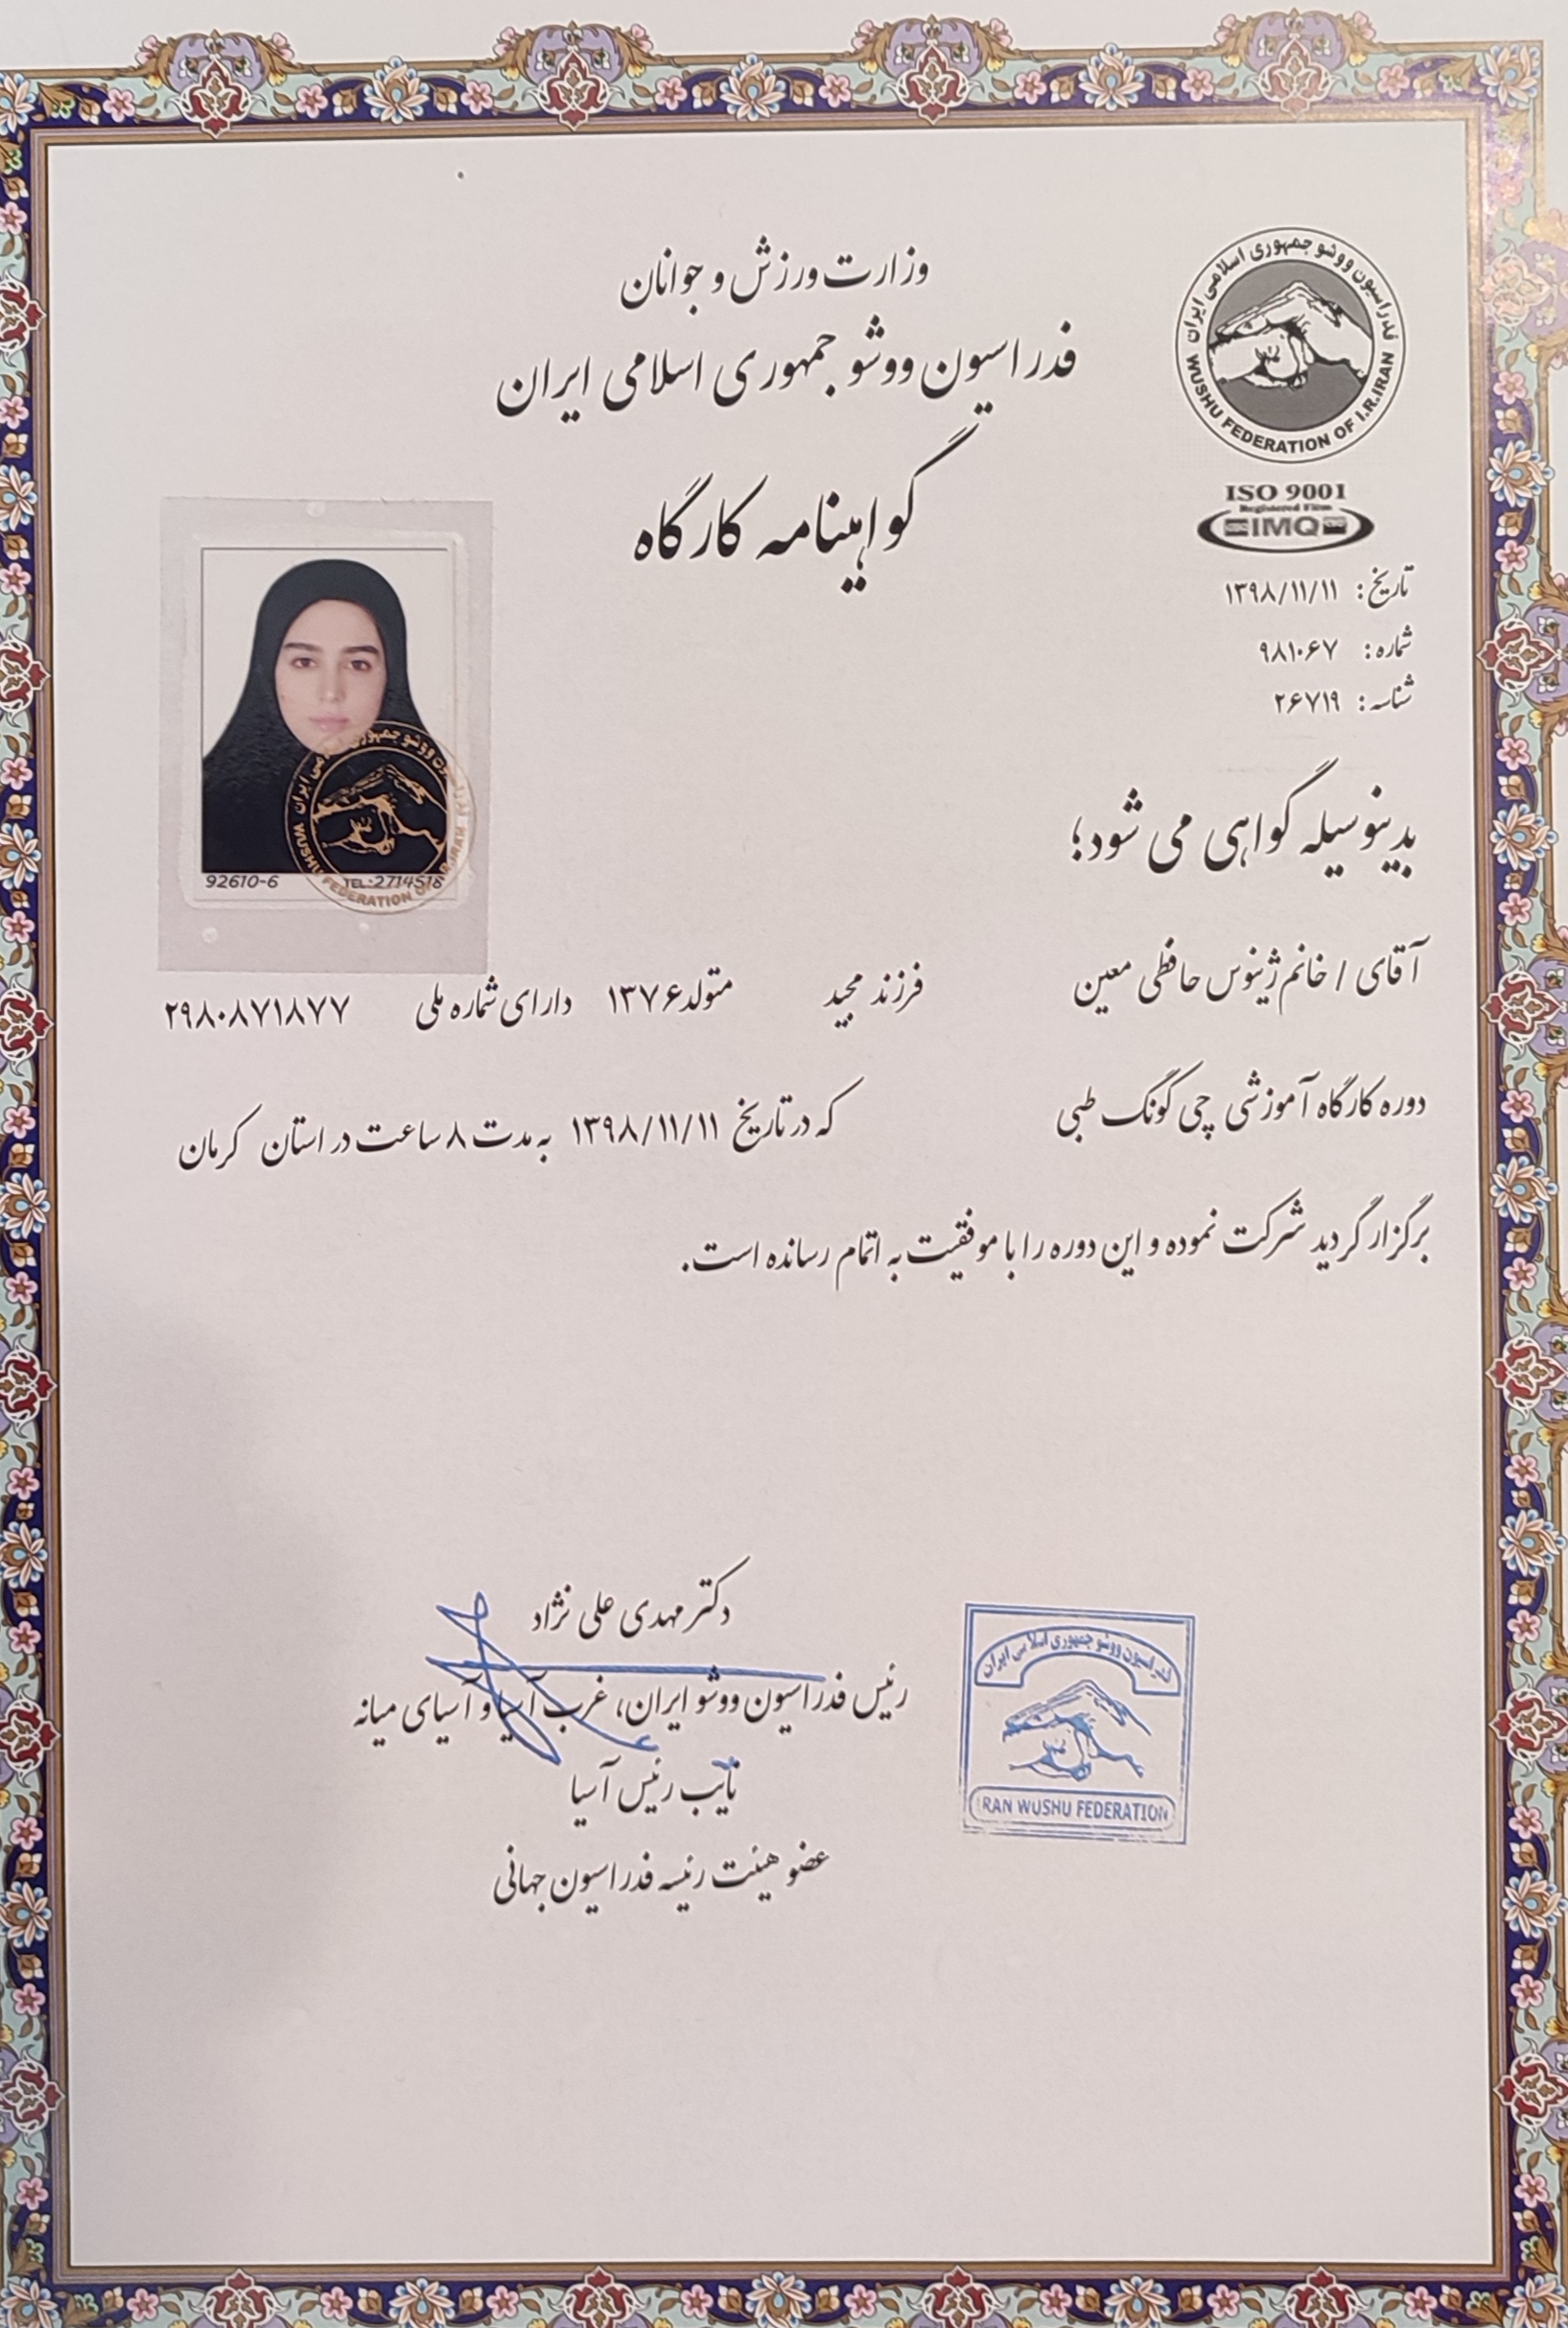 وزارت ورزش و جوانان
فدراسیون ووشو جمهوری اسلامی ایران
گواهینامه کارگاه
فدراسیون ووشو جمهوری اسلامی ایران
WUSHU FEDERATION OF I.R.IRAN
ISO 9001
Registered Firm
IMQ
تاریخ: ۱۳۹۸/۱۱/۱۱
شماره: ۹۸۱۰۶۷
شناسه: ۲۶۷۱۹
92610-6 TEL:2714518
فدراسیون ووشو جمهوری اسلامی ایران
WUSHU FEDERATION OF I.R.IRAN
بدینوسیله گواهی می شود؛
آقای / خانم ژینوس حافظی معین فرزند مجید متولد ۱۳۷۶ دارای شماره ملی ۲۹۸۰۸۷۱۸۷۷
دوره کارگاه آموزشی چی گونگ طبی که در تاریخ ۱۳۹۸/۱۱/۱۱ به مدت ۸ ساعت در استان کرمان
برگزار گردید شرکت نموده و این دوره را با موفقیت به اتمام رسانده است.
دکتر مهدی علی نژاد
رئیس فدراسیون ووشو ایران، غرب آسیا و آسیای میانه
نایب رئیس آسیا
عضو هیئت رئیسه فدراسیون جهانی
فدراسیون ووشو جمهوری اسلامی ایران
IRAN WUSHU FEDERATION